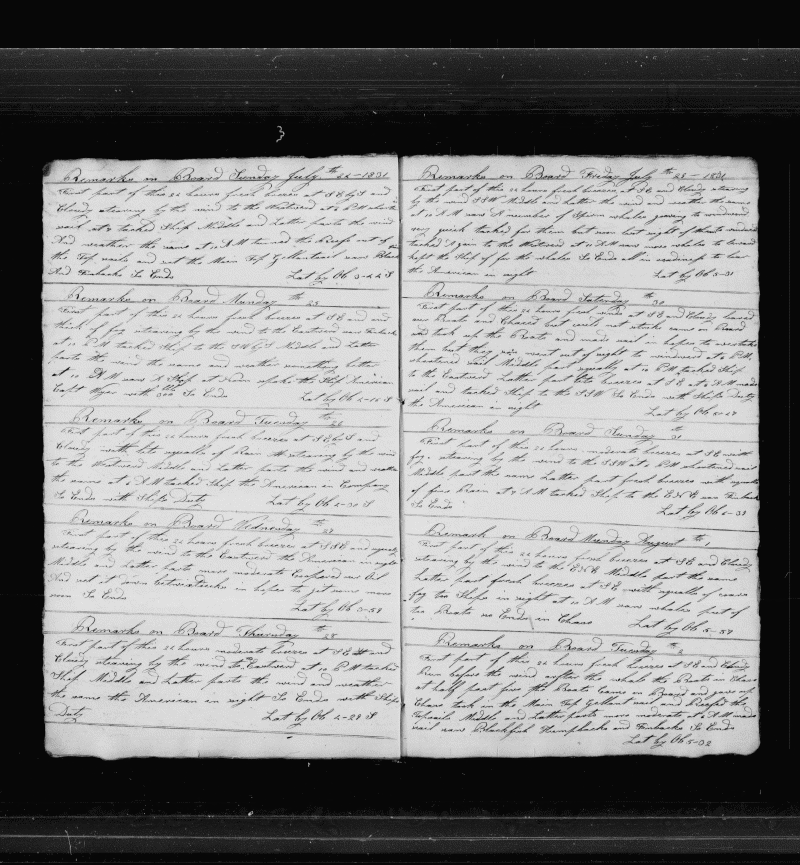 3
Remarks on Board Sunday July th 24-1831
First part of this 24 hours fresh breeze at SEbyS and
Cloudy stearing by the wind to the Westward at 4 PM
sail at 8 tacked Ship Middle and Latter parts the wind
And weather the same at 10 AM turned the Reefs out of
the Top sails and set the Main Top Gallantsail saw Black
And Finbacks So Ends Lat by Ob 5-44 S
Remarks on Board Munday th 25
First part of this 24 hours fresh breeze at SE and and
thick of fog stearing by the wind to the Eastward saw Finbacks
at 10 PM tacked Ship to the SWbyS Middle and Latter
parts the wind the same and weather something better
at 10 AM saw A Ship at Noon spoke the Ship American
Capt with 300 So Ends Lat by Ob 5-15 S
Remarks on Board Tuesday th 26
First part of this 24 hours fresh breeze at SEbyS and
Cloudy with lite squalls of Rain stearing by the wind
to the Westward Middle and Latter parts the wind and weather
the same at 8 AM tacked Ship the American in Company
So Ends with Ships Duty Lat by Ob 5-30 S
Remarks on Board Wednesday th 27
First part of this 24 hours fresh breeze at SSE and squaly
stearing by the wind to the Eastward the American in sight
Middle and Latter parts more moderate Coopered our Oil
And set it down betwixtdecks in hopes to get some more
soon So Ends Lat by Ob 5-58
Remarks on Board Thursday th 28
First part of this 24 hours moderate breeze at SE and
Cloudy stearing by the wind to Eastward at 10 PM tacked
Ship Middle and Latter parts the wind and weather
the same the American in sight So Ends with Ships
Duty Lat by Ob 5-28 S
Remarks on Board Friday July th 29-1831
First part of this 24 hours fresh breeze at SE and Cloudy stearing
by the wind SSW Middle and latter the wind and weather the same
at 10 AM saw A number of Sperm whales going to windward
very quick tacked for them but soon lost sight of them
tacked Again to the Westward at 11 AM saw more whales to leward
kept the Ship of for the whales So Ends all in readiness to lower
the American in sight Lat by Ob 5-31
Remarks on Board Saterday th 30
First part of this 24 hours fresh winds at SE and Cloudy lowered
our Boats and Chased but could not strike came on Board
and took up the Boats and made sail in hopes to overtake
them but they went out of sight to windward at 6 PM
shortened sail Middle part squaly at 10 PM tacked Ship
to the Eastward Latter part lite breezes at SE at 8 AM made
sail and tacked Ship to the SSW So Ends with Ships Duty
the American in sight Lat by Ob 5-27
Remarks on Board Sunday th 31
First part of this 24 hours moderate breeze at SE with
fog stearing by the wind to the SSW at 6 PM shortened sail
Middle part the same Latter part fresh breeze with squalls
of fine Rain at 8 AM tacked Ship to the ENE saw Finbacks
So Ends Lat by Ob 5-39
Remark on Board Munday August th 1
First part of this 24 hours fresh breeze at SE and Cloudy
stearing by the wind to the ENE Middle part the same
Latter part fresh breezes at SE with squalls of
fog two Ships in sight at 10 AM saw whales part of
two Boats So Ends in Chase Lat by Ob 5-57
Remarks on Board Tuesday th 2
First part of this 24 hours fresh breeze at SE and Cloudy
Run before the wind after the whale the Boats in Chase
at half past five the Boats Came on Board and gave up
Chase took in the Main Top Gallant sail and Reefed the
Topsails Middle and Latter parts more moderate at 8 AM made
sail saw Blackfish Humpbacks and Finbacks So Ends
Lat by Ob 5-32